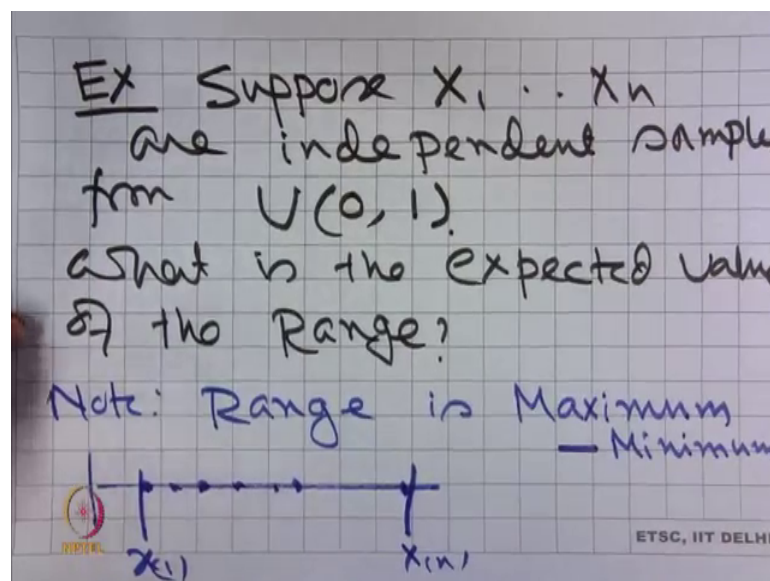 Ex Suppose X1 .. Xn
are independent sample
from U(0,1).
What is the expected value
of the Range?
Note: Range is Maximum
— Minimum
X(1) X(n)
NPTEL
ETSC, IIT DELHI